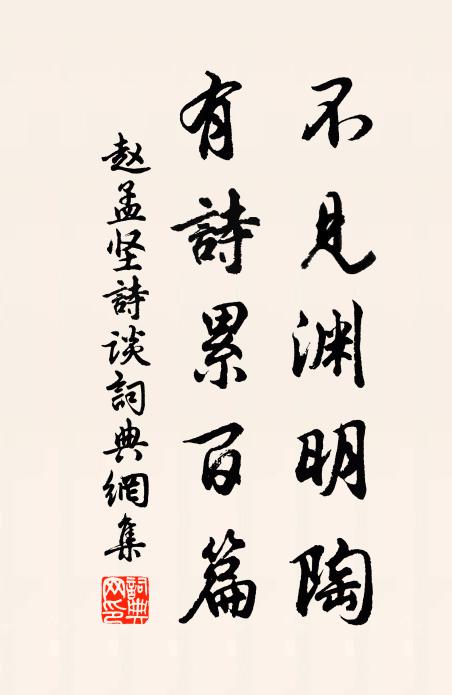 不见渊明陶
有詩累百篇
赵孟坚詩谈詞典網集
詞典网印